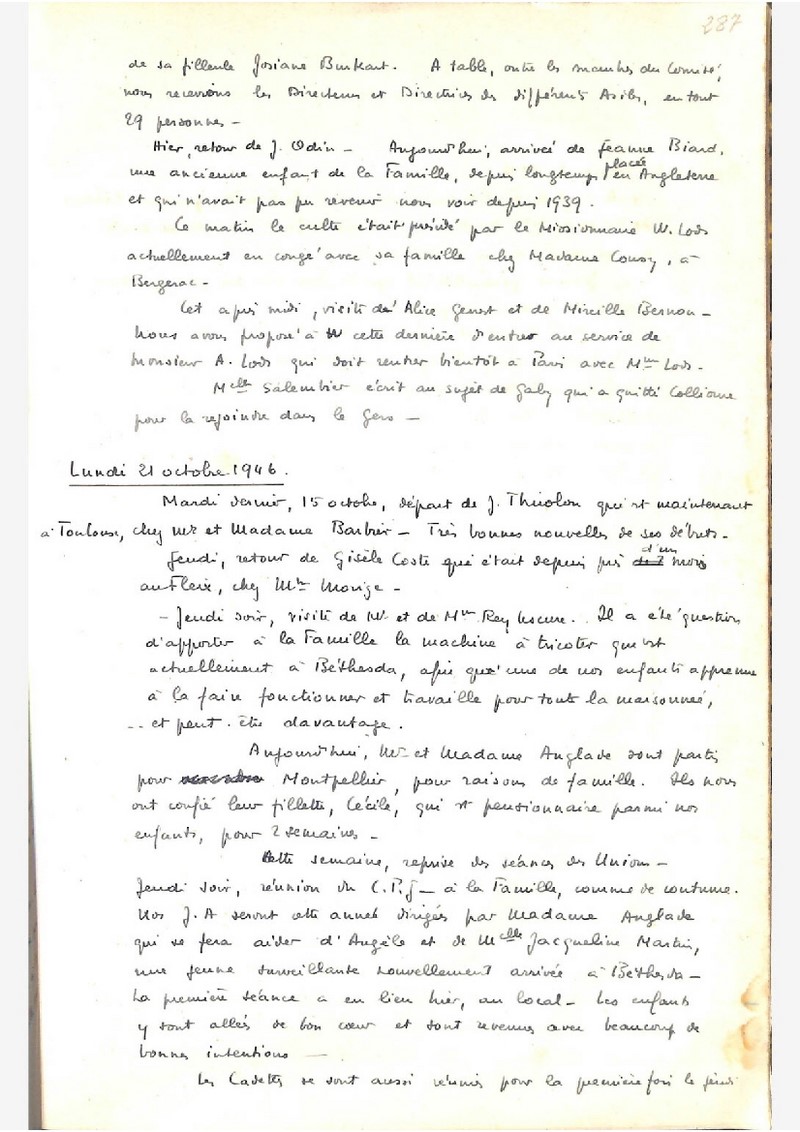 287
de sa filleule Josiane Burkart. A table, outre les membres du Comité,
nous recevions les Directeurs et Directrices des différents Asiles, en tout
29 personnes –
Hier, retour de J. Odin – Aujourd'hui, arrivée de Jeanne Biard,
une ancienne enfant de la Famille, depuis longtemps placée en Angleterre
et qui n'avait pas pu revenir nous voir depuis 1939.
Ce matin le culte était présidé par le Missionnaire W. Lods
actuellement en congé avec sa famille chez Madame Cousy, à
Bergerac –
Cet après midi, visite de Alice Genest et de Mireille Bernon –
Nous avons proposé à cette dernière d'entrer au service de
Monsieur A. Lods qui doit rentrer bientôt à Paris avec Mme Lods.
Melle Salembier écrit au sujet de Gaby qui a quitté
pour la rejoindre dans le Gers –
Lundi 21 octobre 1946.
Mardi dernier, 15 octobre, départ de J. qui est maintenant
à Toulouse, chez Mr et Madame Barbier – Très bonnes nouvelles de ses débuts –
Jeudi, retour de Gisèle Coste qui était depuis près d'un mois
au Fleix, chez Mme –
– Jeudi soir, visite de Mr et de Mme Rey Lescure. Il a été question
d'apporter à la Famille la machine à tricoter qui est
actuellement à Béthesda, afin que une de nos enfants apprenne
à la faire fonctionner et travaille pour toute la maisonnée,
.. et peut-être davantage.
Aujourd'hui, Mr et Madame Anglade sont partis
pour Montpellier, pour raisons de famille. Ils nous
ont confié leur fillette, Cécile, qui est pensionnaire parmi nos
enfants, pour 2 semaines –
Cette semaine, reprise des séances des Unions –
Jeudi soir, réunion du C.P.J – à la Famille, comme de coutume.
Nos J.A seront cette année dirigées par Madame Anglade
qui se fera aider d'Angèle et de Melle Jacqueline Martin,
une jeune surveillante nouvellement arrivée à Béthesda –
La première séance a eu lieu hier, au local – Les enfants
y sont allés de bon cœur et sont revenus avec beaucoup de
bonnes intentions –
Les Cadettes se sont aussi réunies pour la première fois le jeudi